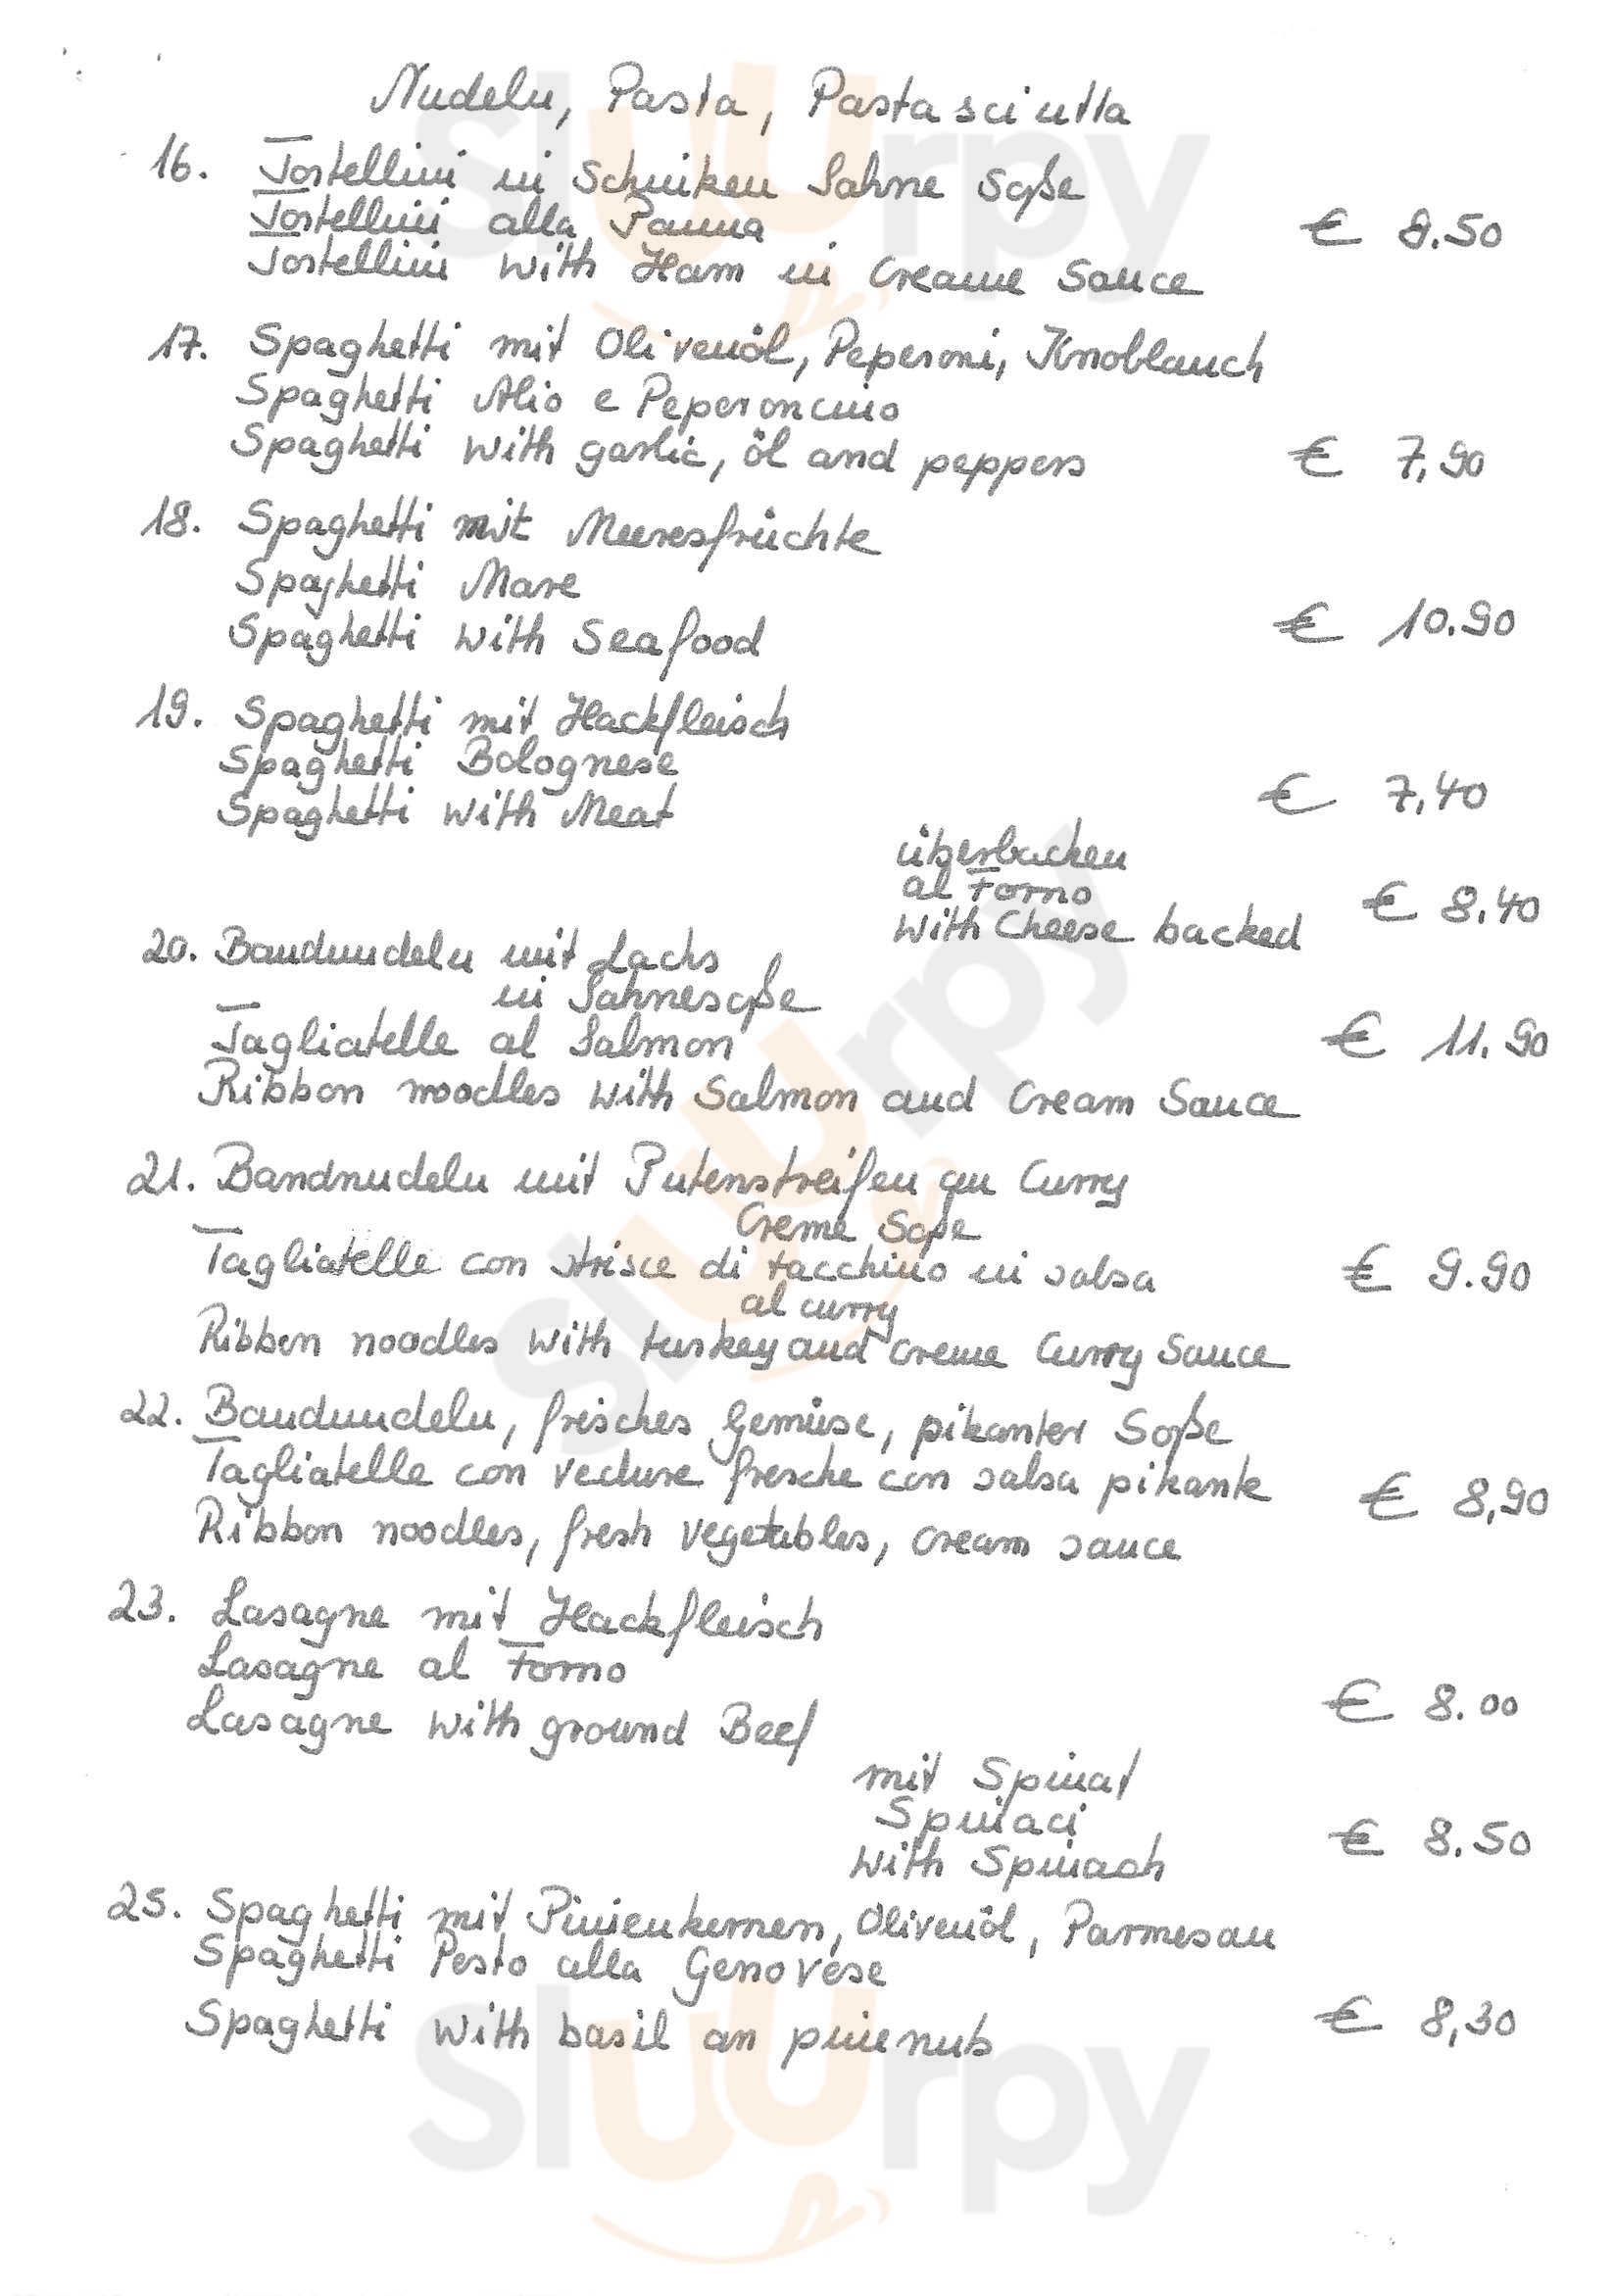 Nudeln, Pasta, Pasta sciutta
16. Tortellini in Schinken Sahne Soße
Tortellini alla Panna
€ 8.50
Tortellini with Ham in Creame Sauce
17. Spaghetti mit Olivenöl, Peperoni, Knoblauch
Spaghetti Alio e Peperoncino
Spaghetti with garlic, öl and peppers
€ 7,90
18. Spaghetti mit Meeresfrüchte
Spaghetti Mare
Spaghetti with Seafood
€ 10.90
19. Spaghetti mit Hackfleisch
Spaghetti Bolognese
Spaghetti with Meat
€ 7,40
überbacken
al Forno
with Cheese backed
€ 8,40
20. Bandnudeln mit Lachs
in Sahnesoße
Tagliatelle al Salmon
€ 11.90
Ribbon noodles with Salmon and Cream Sauce
21. Bandnudeln mit Putenstreifen an Curry
Creme Soße
Tagliatelle con strisce di tacchino in salsa
al curry
€ 9.90
Ribbon noodles with turkey and creme Curry Sauce
22. Bandnudeln, frisches Gemüse, pikanter Soße
Tagliatelle con vedure fresche con salsa pikante
€ 8,90
Ribbon noodles, fresh vegetables, cream sauce
23. Lasagne mit Hackfleisch
Lasagne al Forno
Lasagne with ground Beef
€ 8.00
mit Spinat
Spinaci
with Spinach
€ 8.50
25. Spaghetti mit Pinienkernen, Olivenöl, Parmesan
Spaghetti Pesto alla Genovese
Spaghetti with basil an pinenuts
€ 8,30
sluurpy
sluurpy
sluurpy